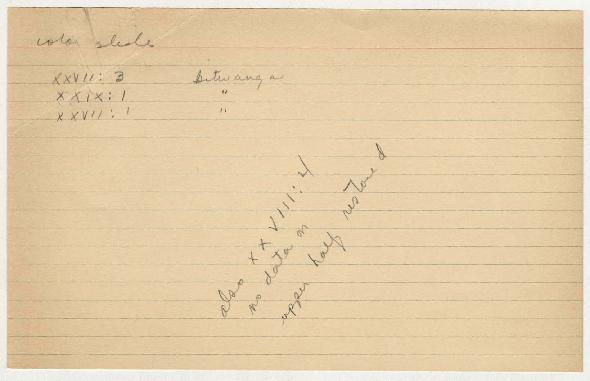 color slides
XXVII: 3 Bitwanga
XXIX: 1 "
XXVII: 1 "
also XXVIII: 4
no data on
upper half restored